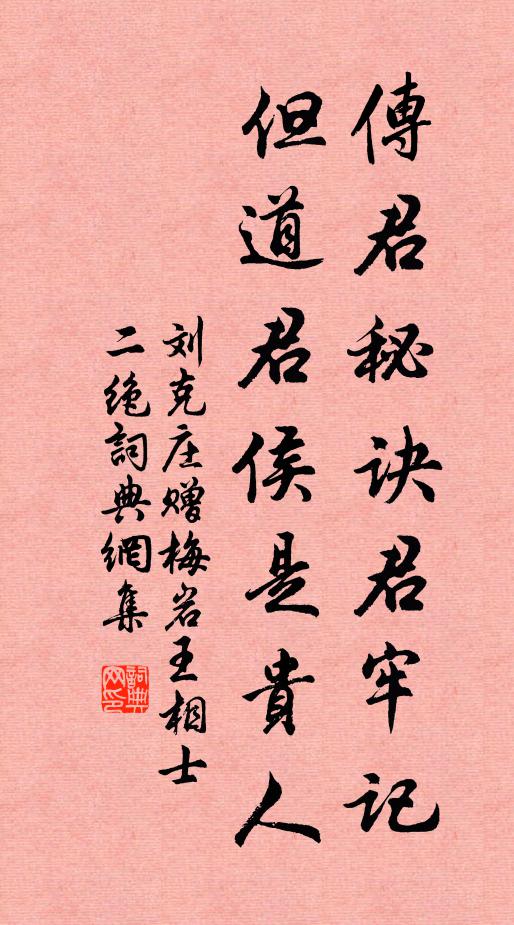 傳君秘訣君牢記
但道君侯是貴人
刘克庄赠梅岩王相士
二绝詞典網集
詞典
网印